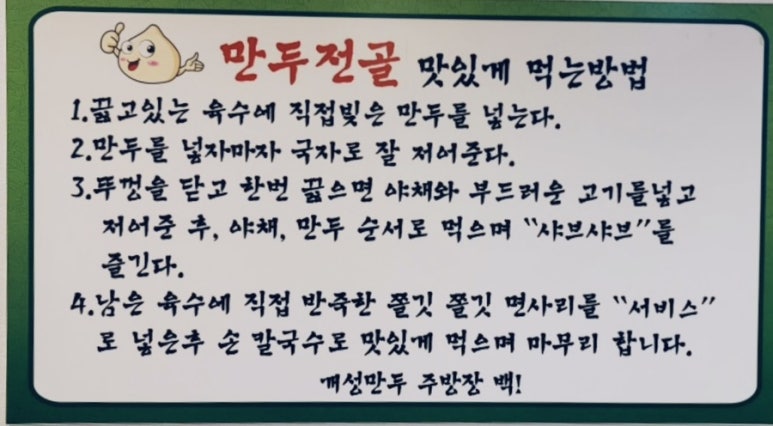 만두전골 맛있게 먹는방법
1.끓고있는 육수에 직접빚은 만두를 넣는다.
2.만두를 넣자마자 국자로 잘 저어준다.
3.뚜껑을 닫고 한번 끓으면 야채와 부드러운 고기를넣고
저어준 후, 야채, 만두 순서로 먹으며 "샤브샤브"를
즐긴다.
4.남은 육수에 직접 반죽한 쫄깃 쫄깃 면사리를 "서비스"
로 넣은후 손 칼국수로 맛있게 먹으며 마무리 합니다.
개성만두 주방장 백!